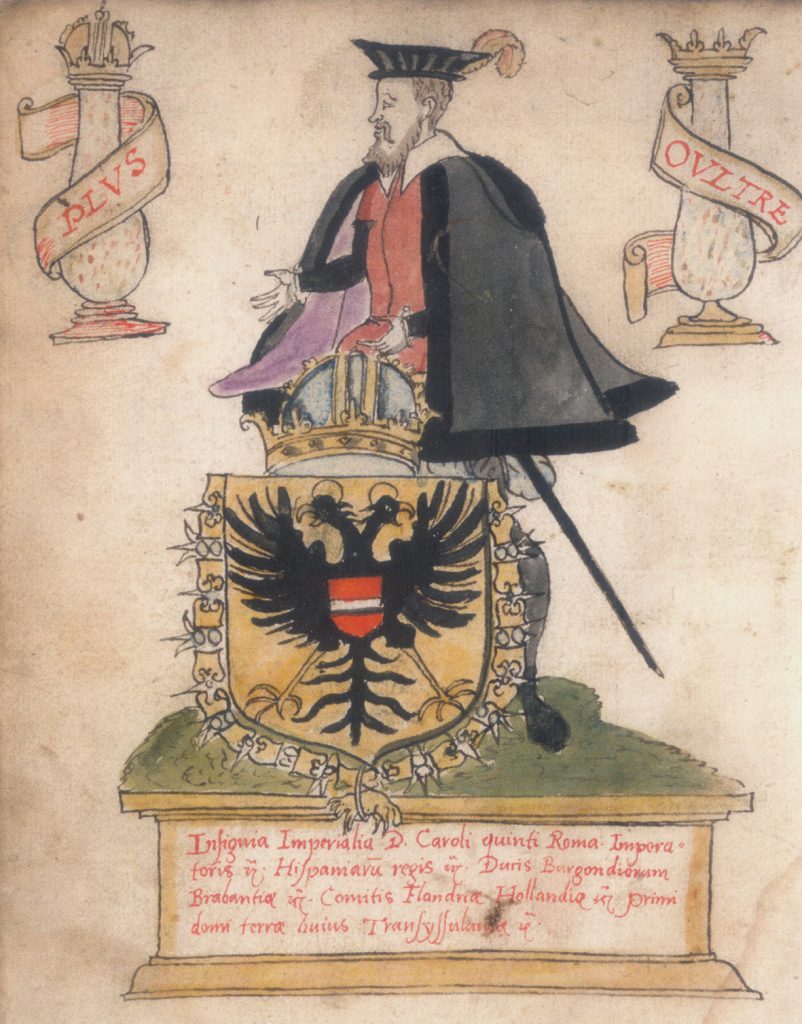 PLVS
OVLTRE
Insignia Imperialia D. Caroli quinti Roma. Impera=
toris ꝛc. Hispaniarū regis ꝛc. Ducis Burgondiorum
Brabantiæ ꝛc. Comitis Flandriæ Hollandiæ ꝛc primi
domi terræ huius Transyssulaniæ ꝛc.